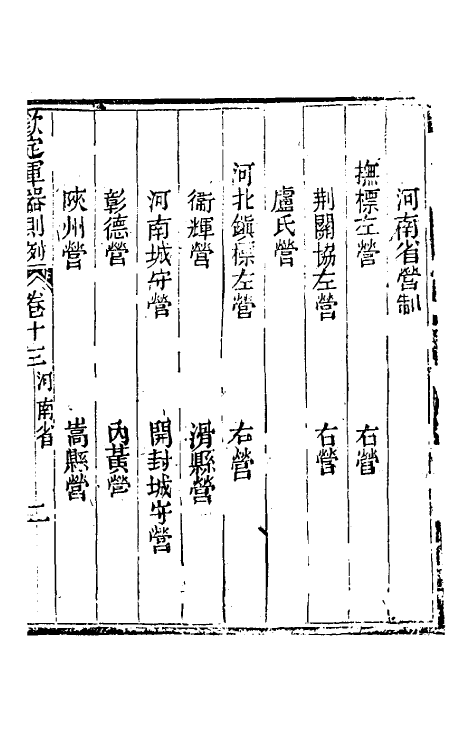 河南省營制
撫標左營　右營
荆關協左營　右營
盧氏營
河北鎭標左營　右營
衞輝營　滑縣營
河南城守營　開封城守營
彰德營　內黃營
陜州營　嵩縣營
欽定軍器則例　卷十三　河南省　二